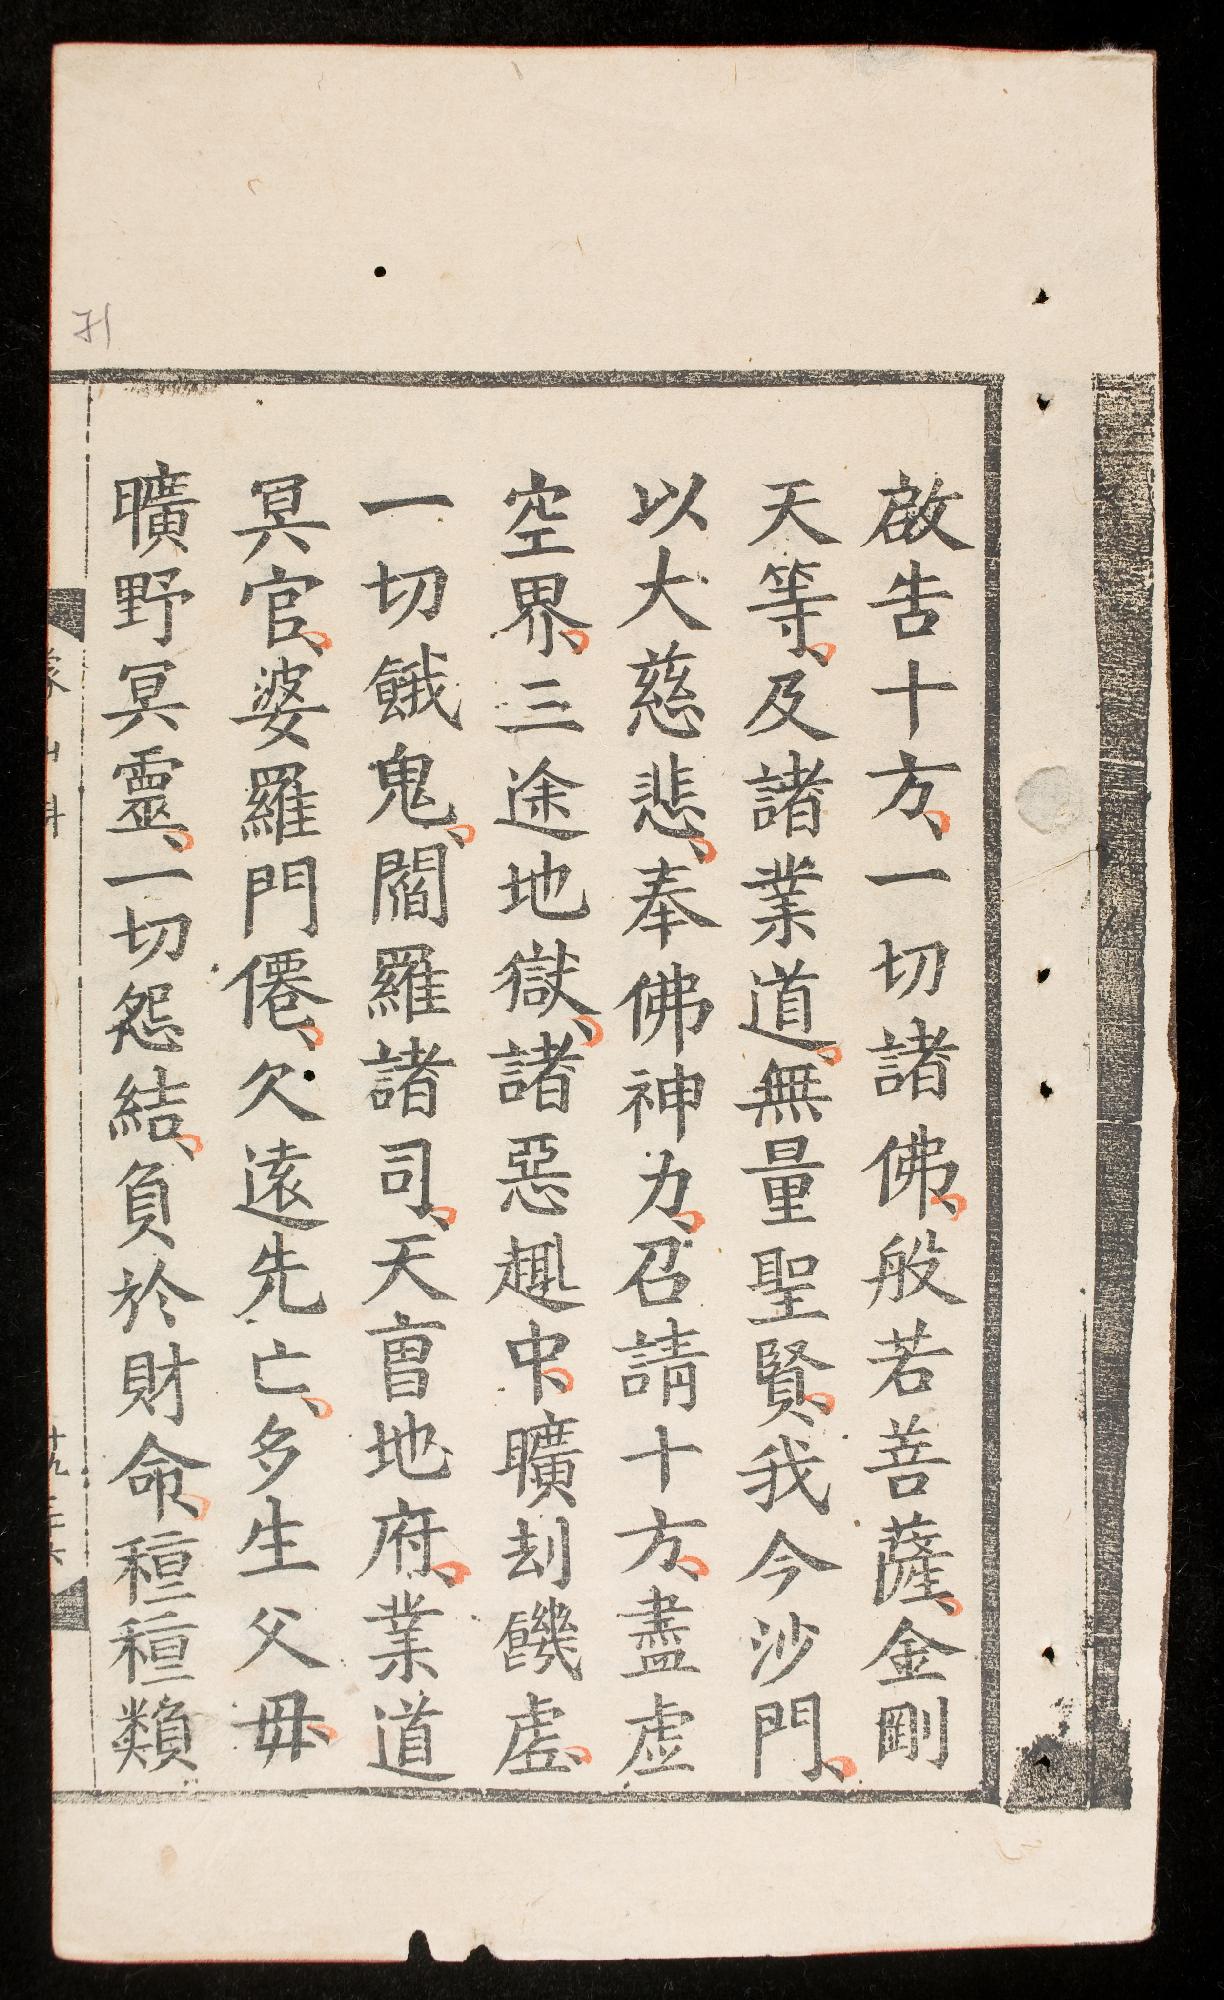 啟告十方、一切諸佛、般若菩薩、金剛
天等、及諸業道、無量聖賢、我今沙門、
以大慈悲、奉佛神力、召請十方、盡虛
空界、三途地獄、諸惡趣中、曠刦饑虛、
一切餓鬼、閻羅諸司、天曺地府、業道
冥官、婆羅門僊、欠遠先亡、多生父母、
曠野冥靈、一切怨結、負於財命、種種類
71